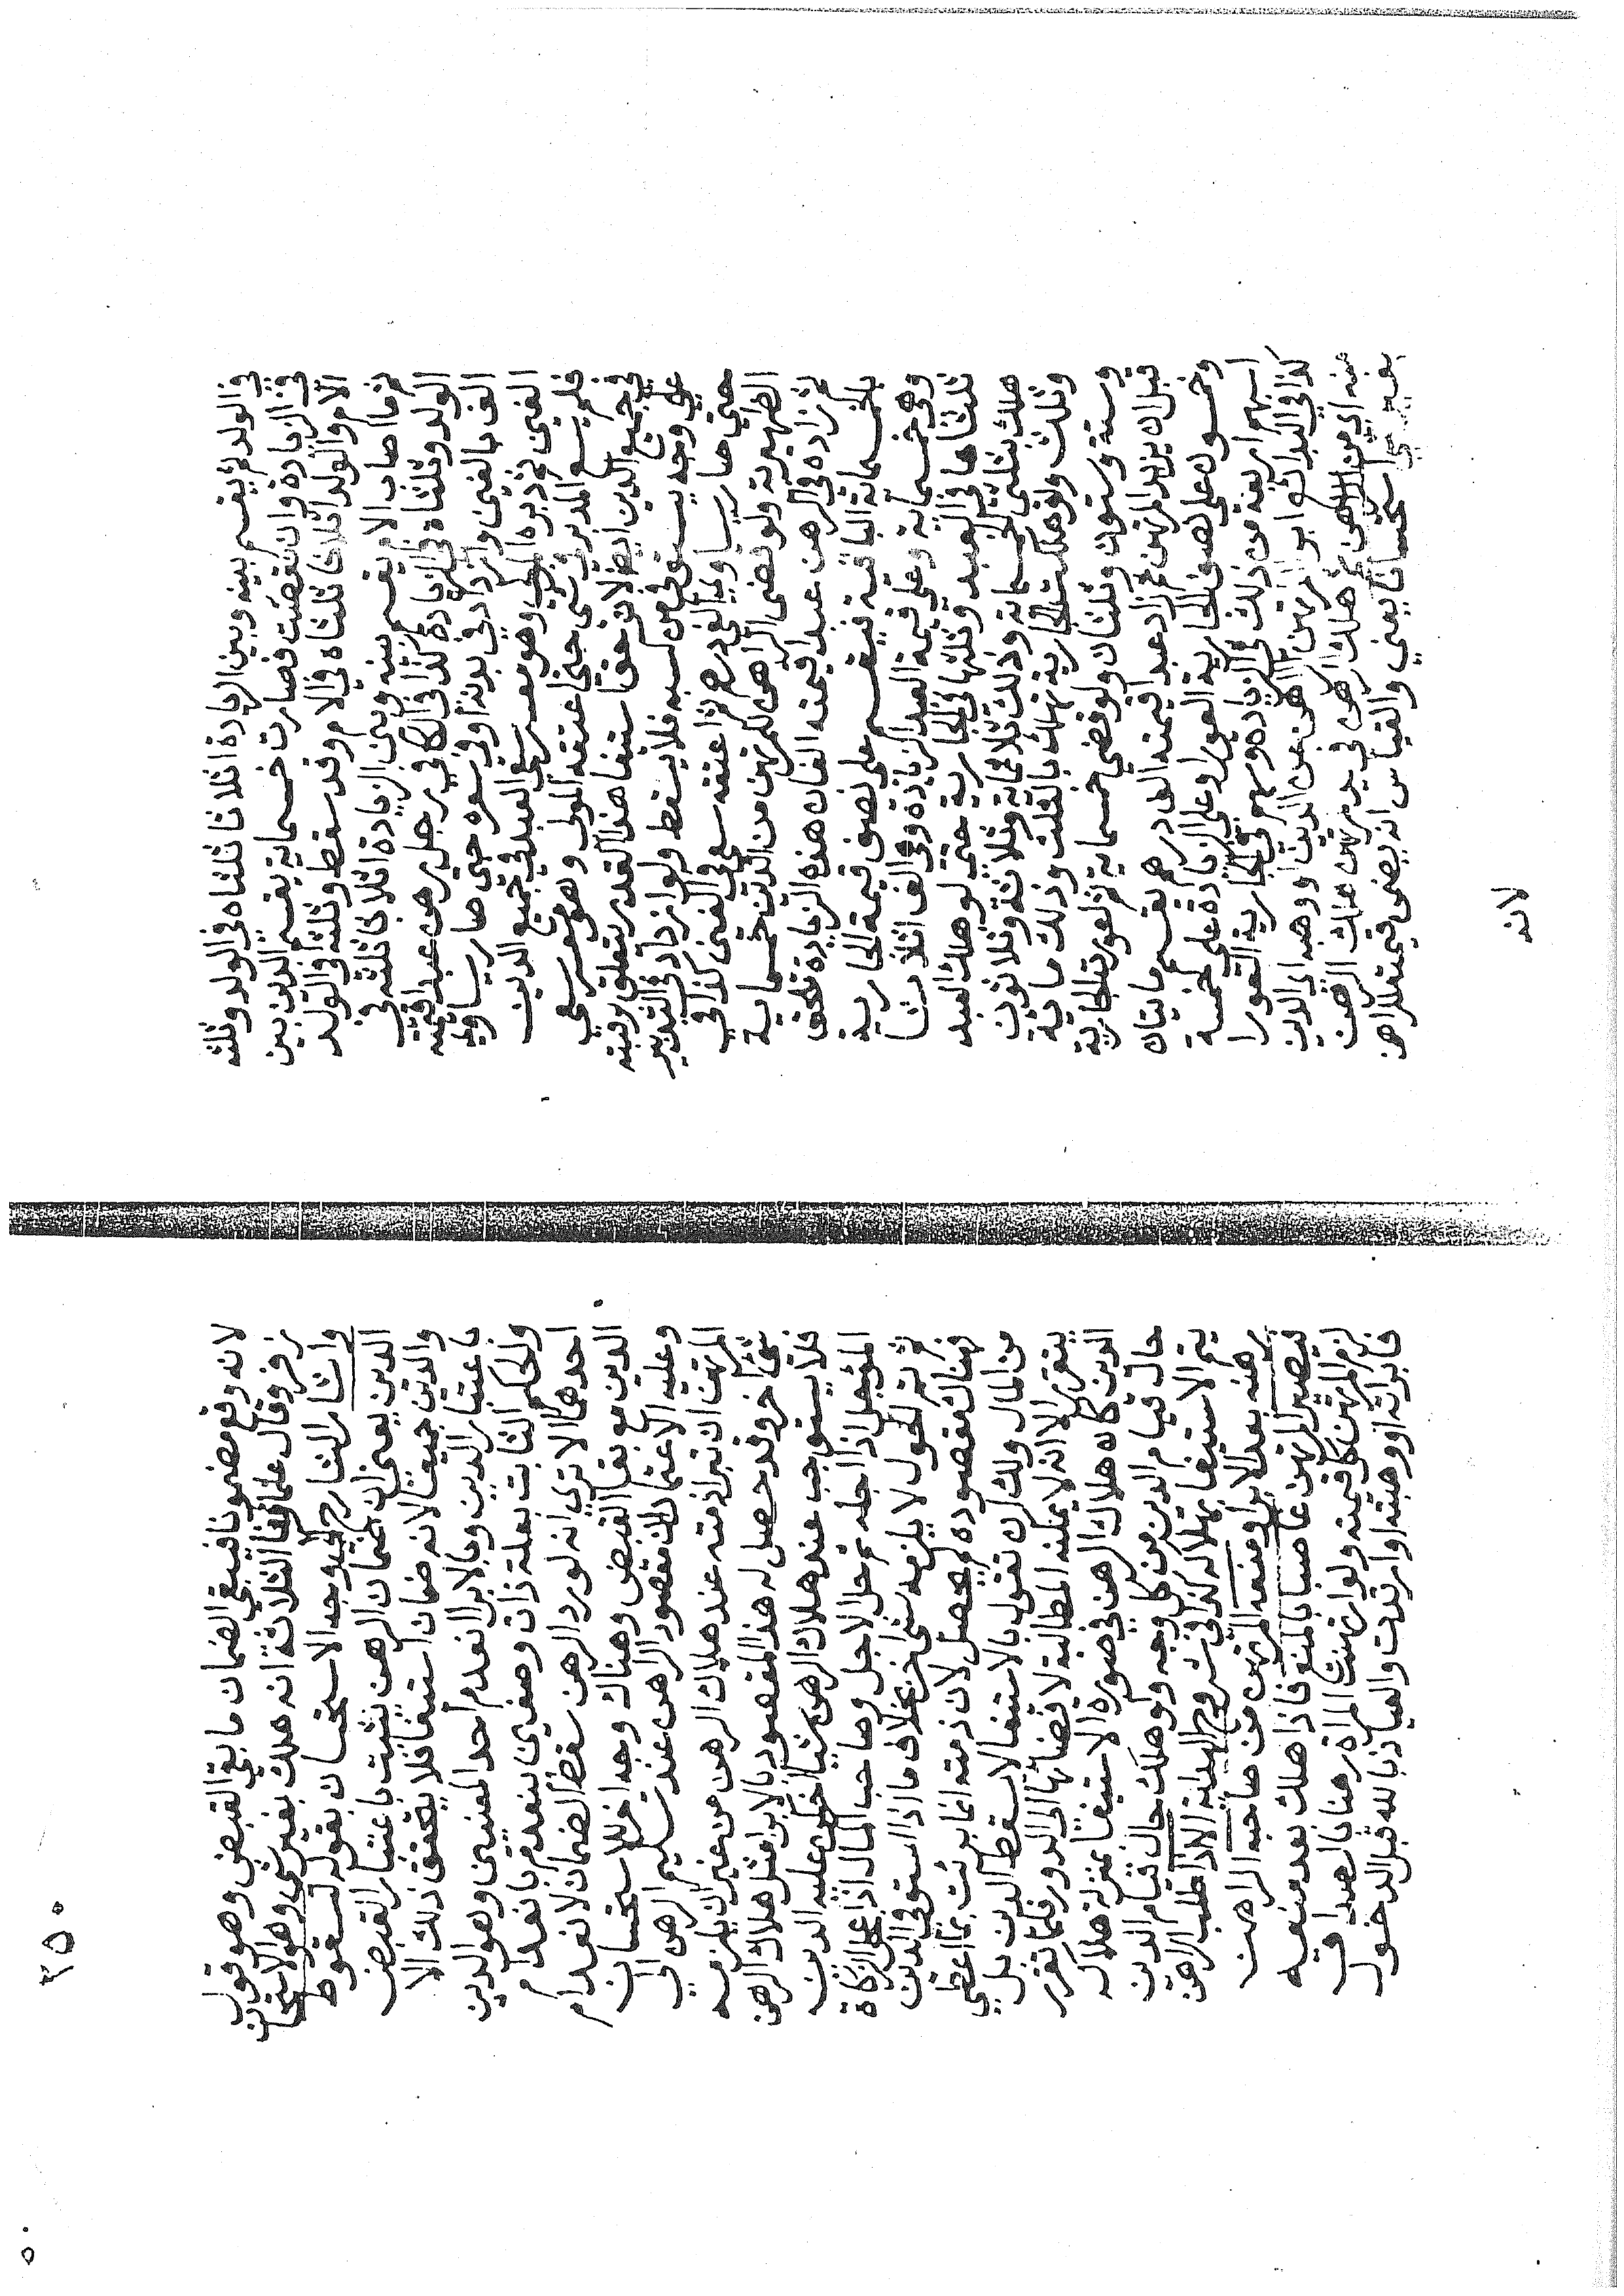 في الولد ثم يقسم بينه وبين الزيادة اثلاثا ثلثاه في الولد وثلثه
في الزيادة وان نقصت فصارت خمسماية يقسم الدين بين
الام والولد اثلاثا ثلثاه في الام وقد سقط وثلثه في الولد
ثم ما صاب الام يقسم بينه وبين الزيادة اثلاثا ثلثه في
الولد وثلثاه في الزيادة كذا في الكافي رجل رهن عبدا قيمته
الف بالفين وازداد في بدنه او في سعره حتى صار يساوي
الفين ثم دبره المولى وهو معسر سعى العبد في جميع الدين
فلم يسع المدبر في شي حتى اعتقه المولى وهو معسر سعى
في جميع الدين ايضا لان حق استيفا هذا القدر يتعلق برقبته
على وجه يستوفى من كسبه فلا يسقط ولو ازداد في التدبير
حتى صار يساوي الفي درهم ثم اعتقه سعى في الفين كذا في
الظهيرية ولو قضى الراهن للمرتهن من الدين خمسماية
ثم زاده في الرهن عبدا قيمته الفان هذه الزيادة تلحق
بالخمسماية الباقية فيقسم على نصف قيمة الجارية
وهي خمسماية وعلى قيمة العبد الزيادة وهي الف اثلاثا
ثلثاها في العبد وثلثها في الجارية حتى لو هلك العبد
هلك بثلثي الخمسماية وذلك ثلاثماية وثلاثة وثلاثون
وثلث ولو هلكت الجارية تهلك بالثلث وذلك ماية
وستة وستون وثلثان ولو قضى خمسماية ثم اعورت الجارية
قبل ان يزيد المرتهن ثم زاد عبدا قيمته الف درهم يقسم مايتان
وخمسون على نصف الجارية العورا وعلى الزيادة على خمسة
اسهم اربعة من ذلك في الزيادة وسهم في الجارية العورا
كذا في البدائع ابرا المرتهن الراهن عن الدين او وهبه اى الدين
منه اى من الراهن ثم هلك الرهن في يد مرتهن هلك الرهن
بغير شي استحسانا يعني والقياس ان يضمن قيمته للراهن
لانه
٣٥٠
لانه وقع مضمونا فيبقى الضمان ما بقي القبض وهو قول
زفر وقال علماؤنا الثلاثة انه هلك بغير شي وهو الاستحسان
واشار الشارح الى وجه الاستحسان بقوله لسقوط
الدين يعني ان ضمان الرهن يثبت باعتبار القبض
والدين جميعا لانه ضمان استيفا فلا يتحقق ذلك الا
باعتبار الدين وبالابرا انعدم احد المعنيين وهو الدين
والحكم الثابت بعلة ذات وصفين ينعدم بانعدام
احدهما الا ترى انه لو رد الرهن سقط الضمان لانعدام
الدين مع بقا القبض وهناك وجه اخر للاستحسان
وعليه الاعتماد ان مقصود الراهن عند تسليم الرهن الي
المرتهن ان تبرا ذمته عند هلاك الرهن من غير ان يلزمه
شي اخر وقد حصل له هذا المقصود بالابرا مثل هلاك الرهن
فلا يستوجب عند هلاك الرهن شيا اخر كمن عليه الدين
المؤجل اذا اجله ثم حل الاجل وصاحب المال اذا عجل الزكاة
ثم تم الحول لا يلزمه شي اخر بخلاف ما اذا استوفى الدين
فهناك مقصوده لم يحصل لان ذمته انما برئت بما اعطى
من المال ولك ان تقول بالاستيفا لا يسقط الدين بل
يتقرر الا انه لا يمكنه المطالبة لافضائها الى الدور فلما تقرر
الدين كان هلاك الرهن في صورة الاستيفا بمنزلة هلاكه
حال قيام الدين من كل وجه ولو هلك حال قيام الدين
يتم الاستيفا بهلاكه كذا في شروح الهداية الا اذا طلب الراهن
رهنه بعد الابرا ومنعه المرتهن من صاحبه الراهن
فيصير المرتهن غاصبا بالمنع فاذا هلك بعد منعه
لزم المرتهن كل قيمته ولو ارتهنت المراة رهنا بالصداق
فابراته او وهبته او ارتدت والعياذ بالله قبل الدخول